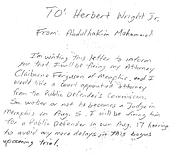 TO: Herbert Wright Jr.
From: Abdulhakim Muhammad
I'm writing this letter to inform
you that I will be firing my Attorney
Claiborne Ferguson of Memphis, and I
would like a court appointed attorney
from the Public Defender's Commission.
Im wether or not he becomes a Judge in
Memphis on Aug. 5. I will be firing him
for a Public Defender in our Aug. 17 hearing
to avoid any more delays in this bogus
upcoming trial.